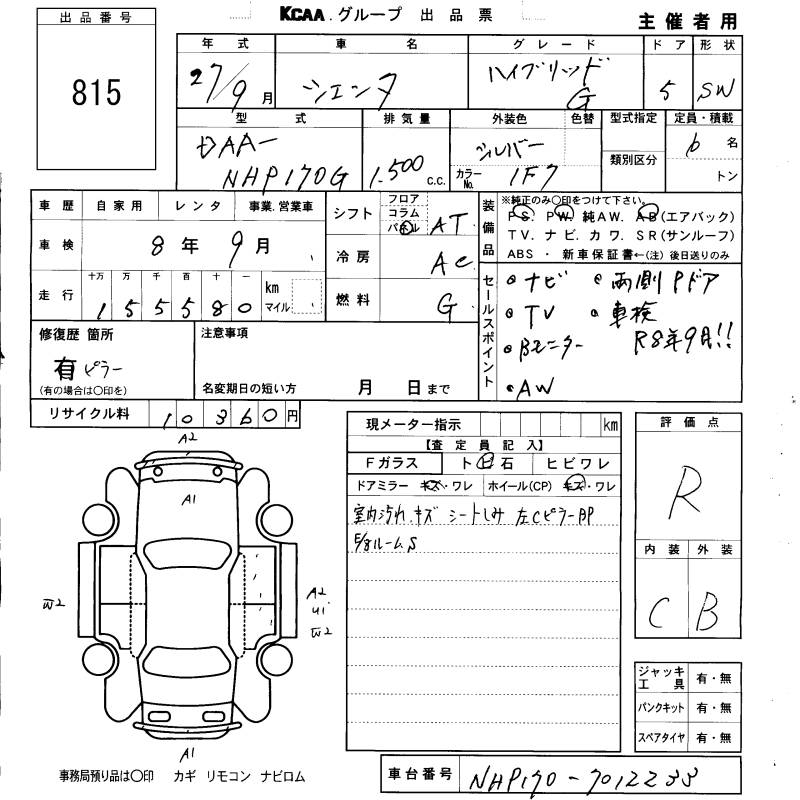 出品番号
815
KCAA.グループ 出品票
主催者用
年式 車名 グレード ドア 形状
27/9月 シエンタ ハイブリッド G 5 SW
型式 排気量 外装色 色替 型式指定 定員・積載
DAA-NHP170G 1.500 c.c. シルバー カラーNo. 1F7 類別区分 6名 トン
車歴 自家用 レンタ 事業.営業車
車検 8年9月
走行 十万 万 千 百 十 一
155580 km マイル
シフト フロア コラム パネル AT
冷房 AC
燃料 G
装備品 ※純正のみ〇印をつけて下さい。
PS. PW. 純AW. AB(エアバック)
TV. ナビ. カワ. SR(サンルーフ)
ABS ・ 新車保証書←(注)後日送りのみ
セールスポイント
・ナビ ・両側Pドア
・TV ・車検
・Bモニター R8年9月!!
・AW
修復歴 箇所
有 ピラー
(有の場合は〇印を)
注意事項
名変期日の短い方 月 日まで
リサイクル料 10360円
現メーター指示 km
【査定員記入】
Fガラス ト ビ 石 ヒビワレ
ドアミラー キズ・ワレ ホイール(CP) キズ・ワレ
室内汚れ.キズ シートしみ 左CピラーBP
E/gルーム.S
評価点
R
内装 外装
C B
A2
A1
W2
A2
U1
W2
A1
ジャッキ工具 有・無
パンクキット 有・無
スペアタイヤ 有・無
事務局預り品は〇印 カギ リモコン ナビロム
車台番号 NHP170-7012233